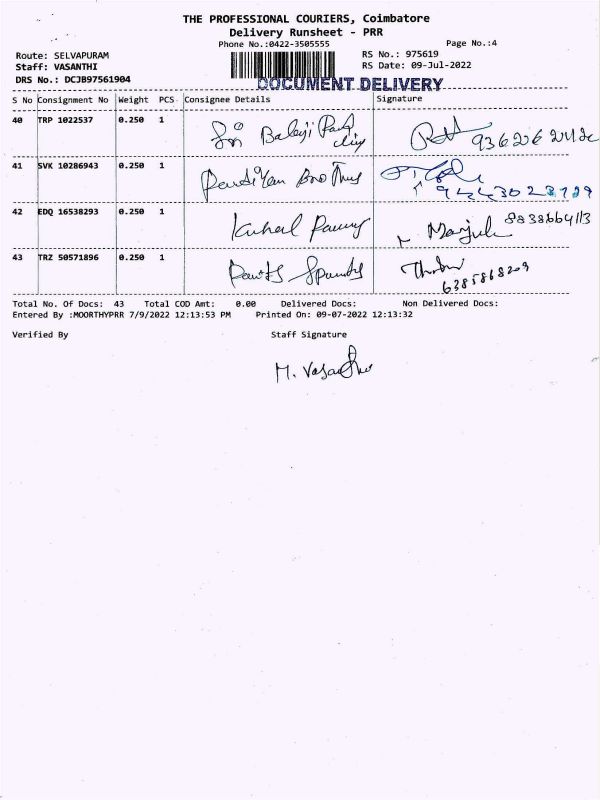 THE PROFESSIONAL COURIERS, Coimbatore
Delivery Runsheet - PRR
Phone No.:0422-3505555
Page No.:4
Route: SELVAPURAM
RS No.: 975619
Staff: VASANTHI
RS Date: 09-Jul-2022
DRS No.: DCJB97561904
DOCUMENT DELIVERY
S No Consignment No Weight PCS Consignee Details Signature
40 TRP 1022537 0.250 1 Sri Balaji
41 SVK 10286943 0.250 1
42 EDQ 16538293 0.250 1 Manjula
43 TRZ 50571896 0.250 1
6385868209
Total No. Of Docs: 43 Total COD Amt: 0.00 Delivered Docs: Non Delivered Docs:
Entered By :MOORTHYPRR 7/9/2022 12:13:53 PM Printed On: 09-07-2022 12:13:32
Verified By Staff Signature
M. Vasantha